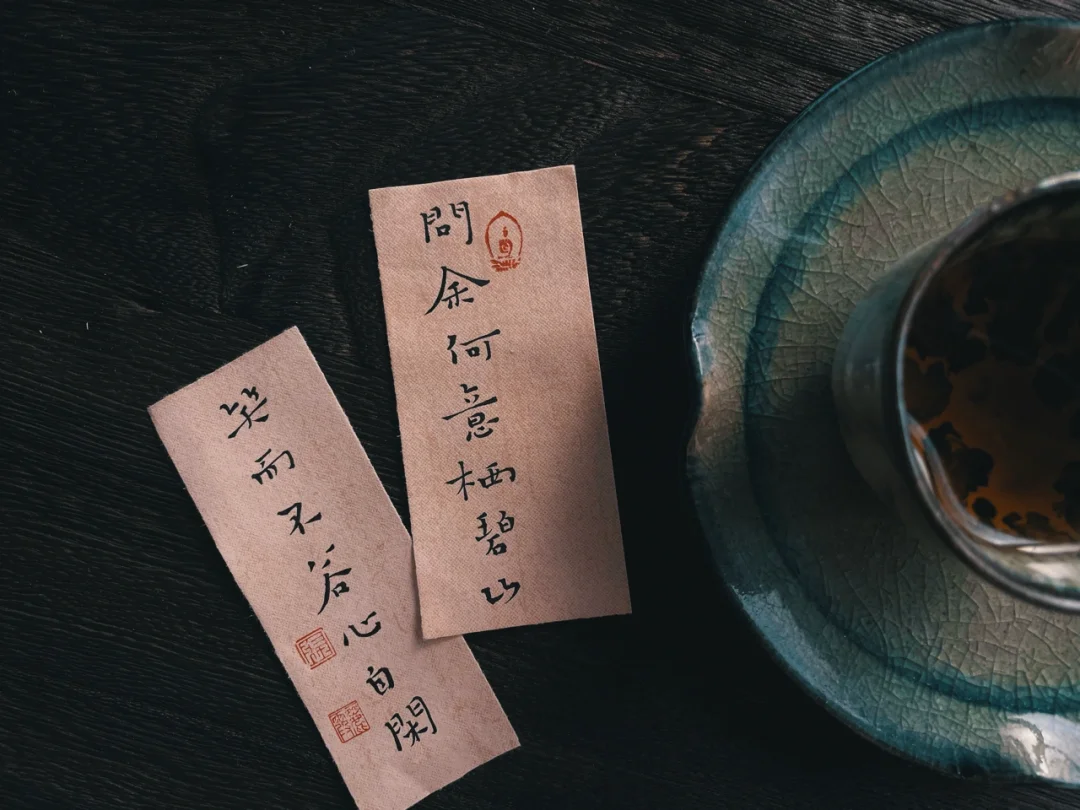 問余何意栖碧山
笑而不答心自閑